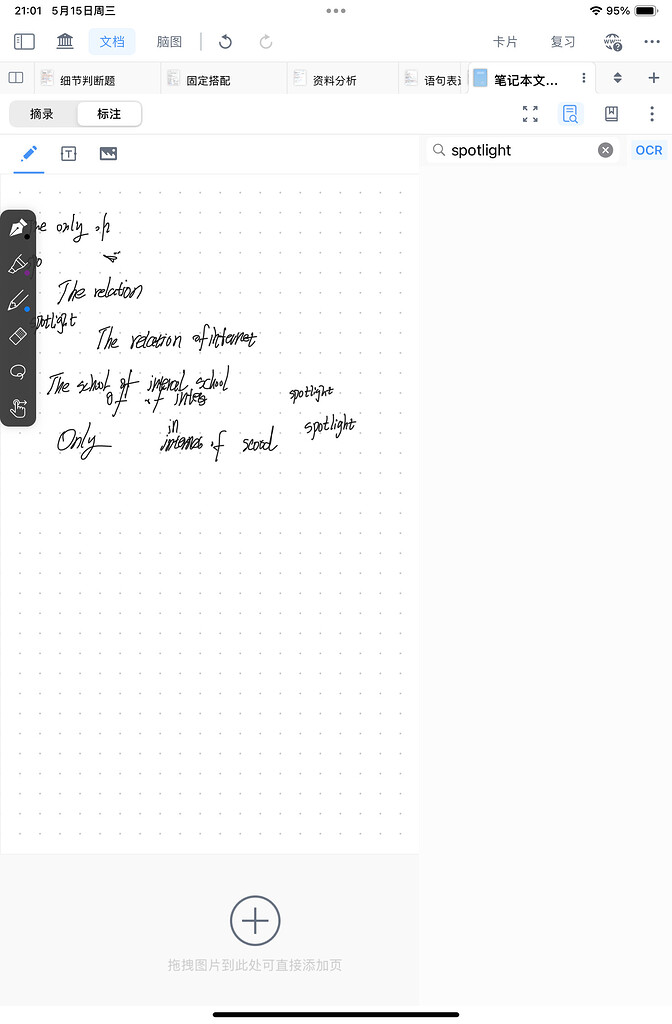 21:01 5月15日周三
95%
文档 脑图 卡片 复习
细节判断题 固定搭配 资料分析 语句表 笔记本文...
摘录 标注
T
spotlight OCR
The only of
The relation
spotlight
The relation of internet
The school of internal school
of of
spotlight
spotlight
in
Only of
拖拽图片到此处可直接添加页